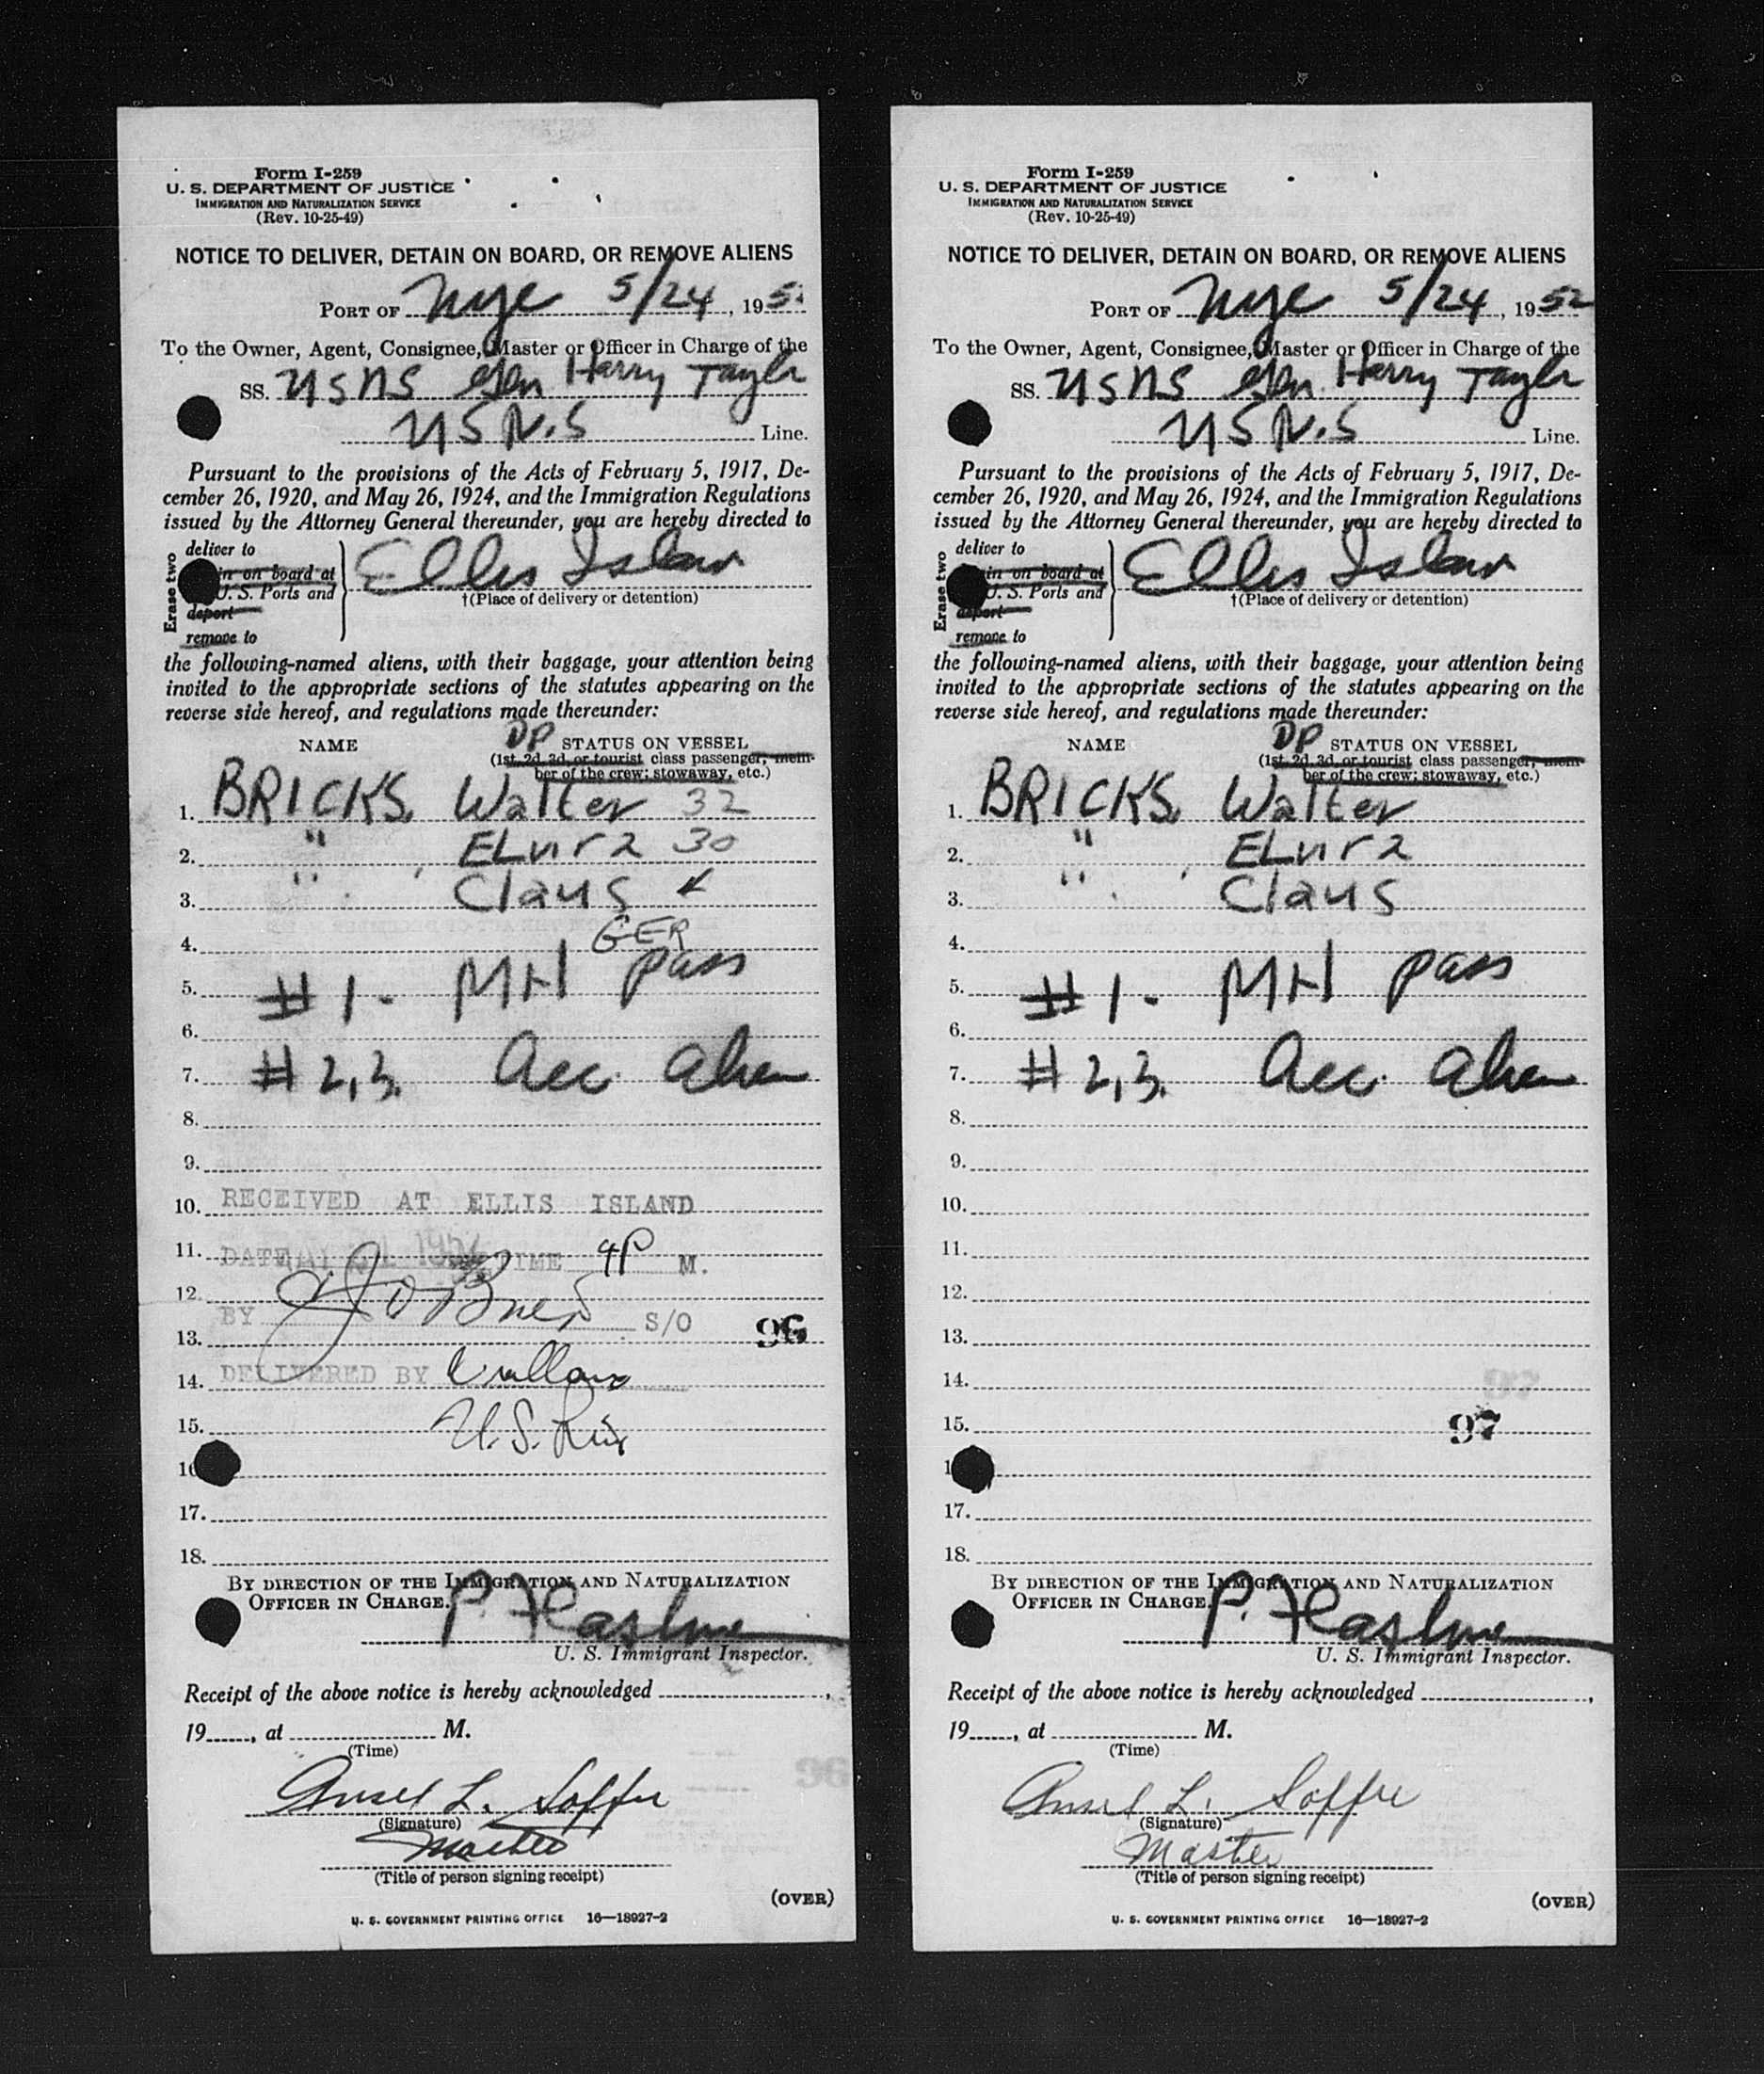 Form I-259
U. S. DEPARTMENT OF JUSTICE
IMMIGRATION AND NATURALIZATION SERVICE
(Rev. 10-25-49)
NOTICE TO DELIVER, DETAIN ON BOARD, OR REMOVE ALIENS
PORT OF NYC 5/24, 195
To the Owner, Agent, Consignee, Master or Officer in Charge of the
SS. USNS Gen Harry Taylor
USN.S Line.
Pursuant to the provisions of the Acts of February 5, 1917, De-
cember 26, 1920, and May 26, 1924, and the Immigration Regulations
issued by the Attorney General thereunder, you are hereby directed to
Erase two
deliver to
in on board at
U. S. Ports and
deport
remove to
Ellis Islan
†(Place of delivery or detention)
the following-named aliens, with their baggage, your attention being
invited to the appropriate sections of the statutes appearing on the
reverse side hereof, and regulations made thereunder:
NAME DP STATUS ON VESSEL
(1st, 2d, 3d, or tourist class passenger; mem-
ber of the crew; stowaway, etc.)
1. BRICKS, Walter 32
2. " ELvira 30
3. " Claus
4. GER
5. #1. MH pass
6.
7. #2,3. Acc. alien
8.
9.
10. RECEIVED AT ELLIS ISLAND
11. DATE 1952 TIME 4P M.
12.
BY J O'Brien S/O
13. 96
14. DELIVERED BY
15. U.S.
16
17.
18.
BY DIRECTION OF THE IMMIGRATION AND NATURALIZATION
OFFICER IN CHARGE.
P.
U. S. Immigrant Inspector.
Receipt of the above notice is hereby acknowledged ,
19 , at M.
(Time)
Ansel L. Soffer
(Signature)
Master
(Title of person signing receipt)
(OVER)
U. S. GOVERNMENT PRINTING OFFICE 16—18927-2
Form I-259
U. S. DEPARTMENT OF JUSTICE
IMMIGRATION AND NATURALIZATION SERVICE
(Rev. 10-25-49)
NOTICE TO DELIVER, DETAIN ON BOARD, OR REMOVE ALIENS
PORT OF NYC 5/24, 1952
To the Owner, Agent, Consignee, Master or Officer in Charge of the
SS. USNS Gen. Harry Taylor
USN.S Line.
Pursuant to the provisions of the Acts of February 5, 1917, De-
cember 26, 1920, and May 26, 1924, and the Immigration Regulations
issued by the Attorney General thereunder, you are hereby directed to
Erase two
deliver to
in on board at
U. S. Ports and
deport
remove to
Ellis Islan
†(Place of delivery or detention)
the following-named aliens, with their baggage, your attention being
invited to the appropriate sections of the statutes appearing on the
reverse side hereof, and regulations made thereunder:
NAME DP STATUS ON VESSEL
(1st, 2d, 3d, or tourist class passenger; mem-
ber of the crew; stowaway, etc.)
1. BRICKS, Walter
2. " ELvira
3. " Claus
4.
5. #1. MH pass
6.
7. #2,3. Acc. alien
8.
9.
10.
11.
12.
13.
14.
15. 97
1
17.
18.
BY DIRECTION OF THE IMMIGRATION AND NATURALIZATION
OFFICER IN CHARGE.
P.
U. S. Immigrant Inspector.
Receipt of the above notice is hereby acknowledged ,
19 , at M.
(Time)
Ansel L. Soffer
(Signature)
Master
(Title of person signing receipt)
(OVER)
U. S. GOVERNMENT PRINTING OFFICE 16—18927-2